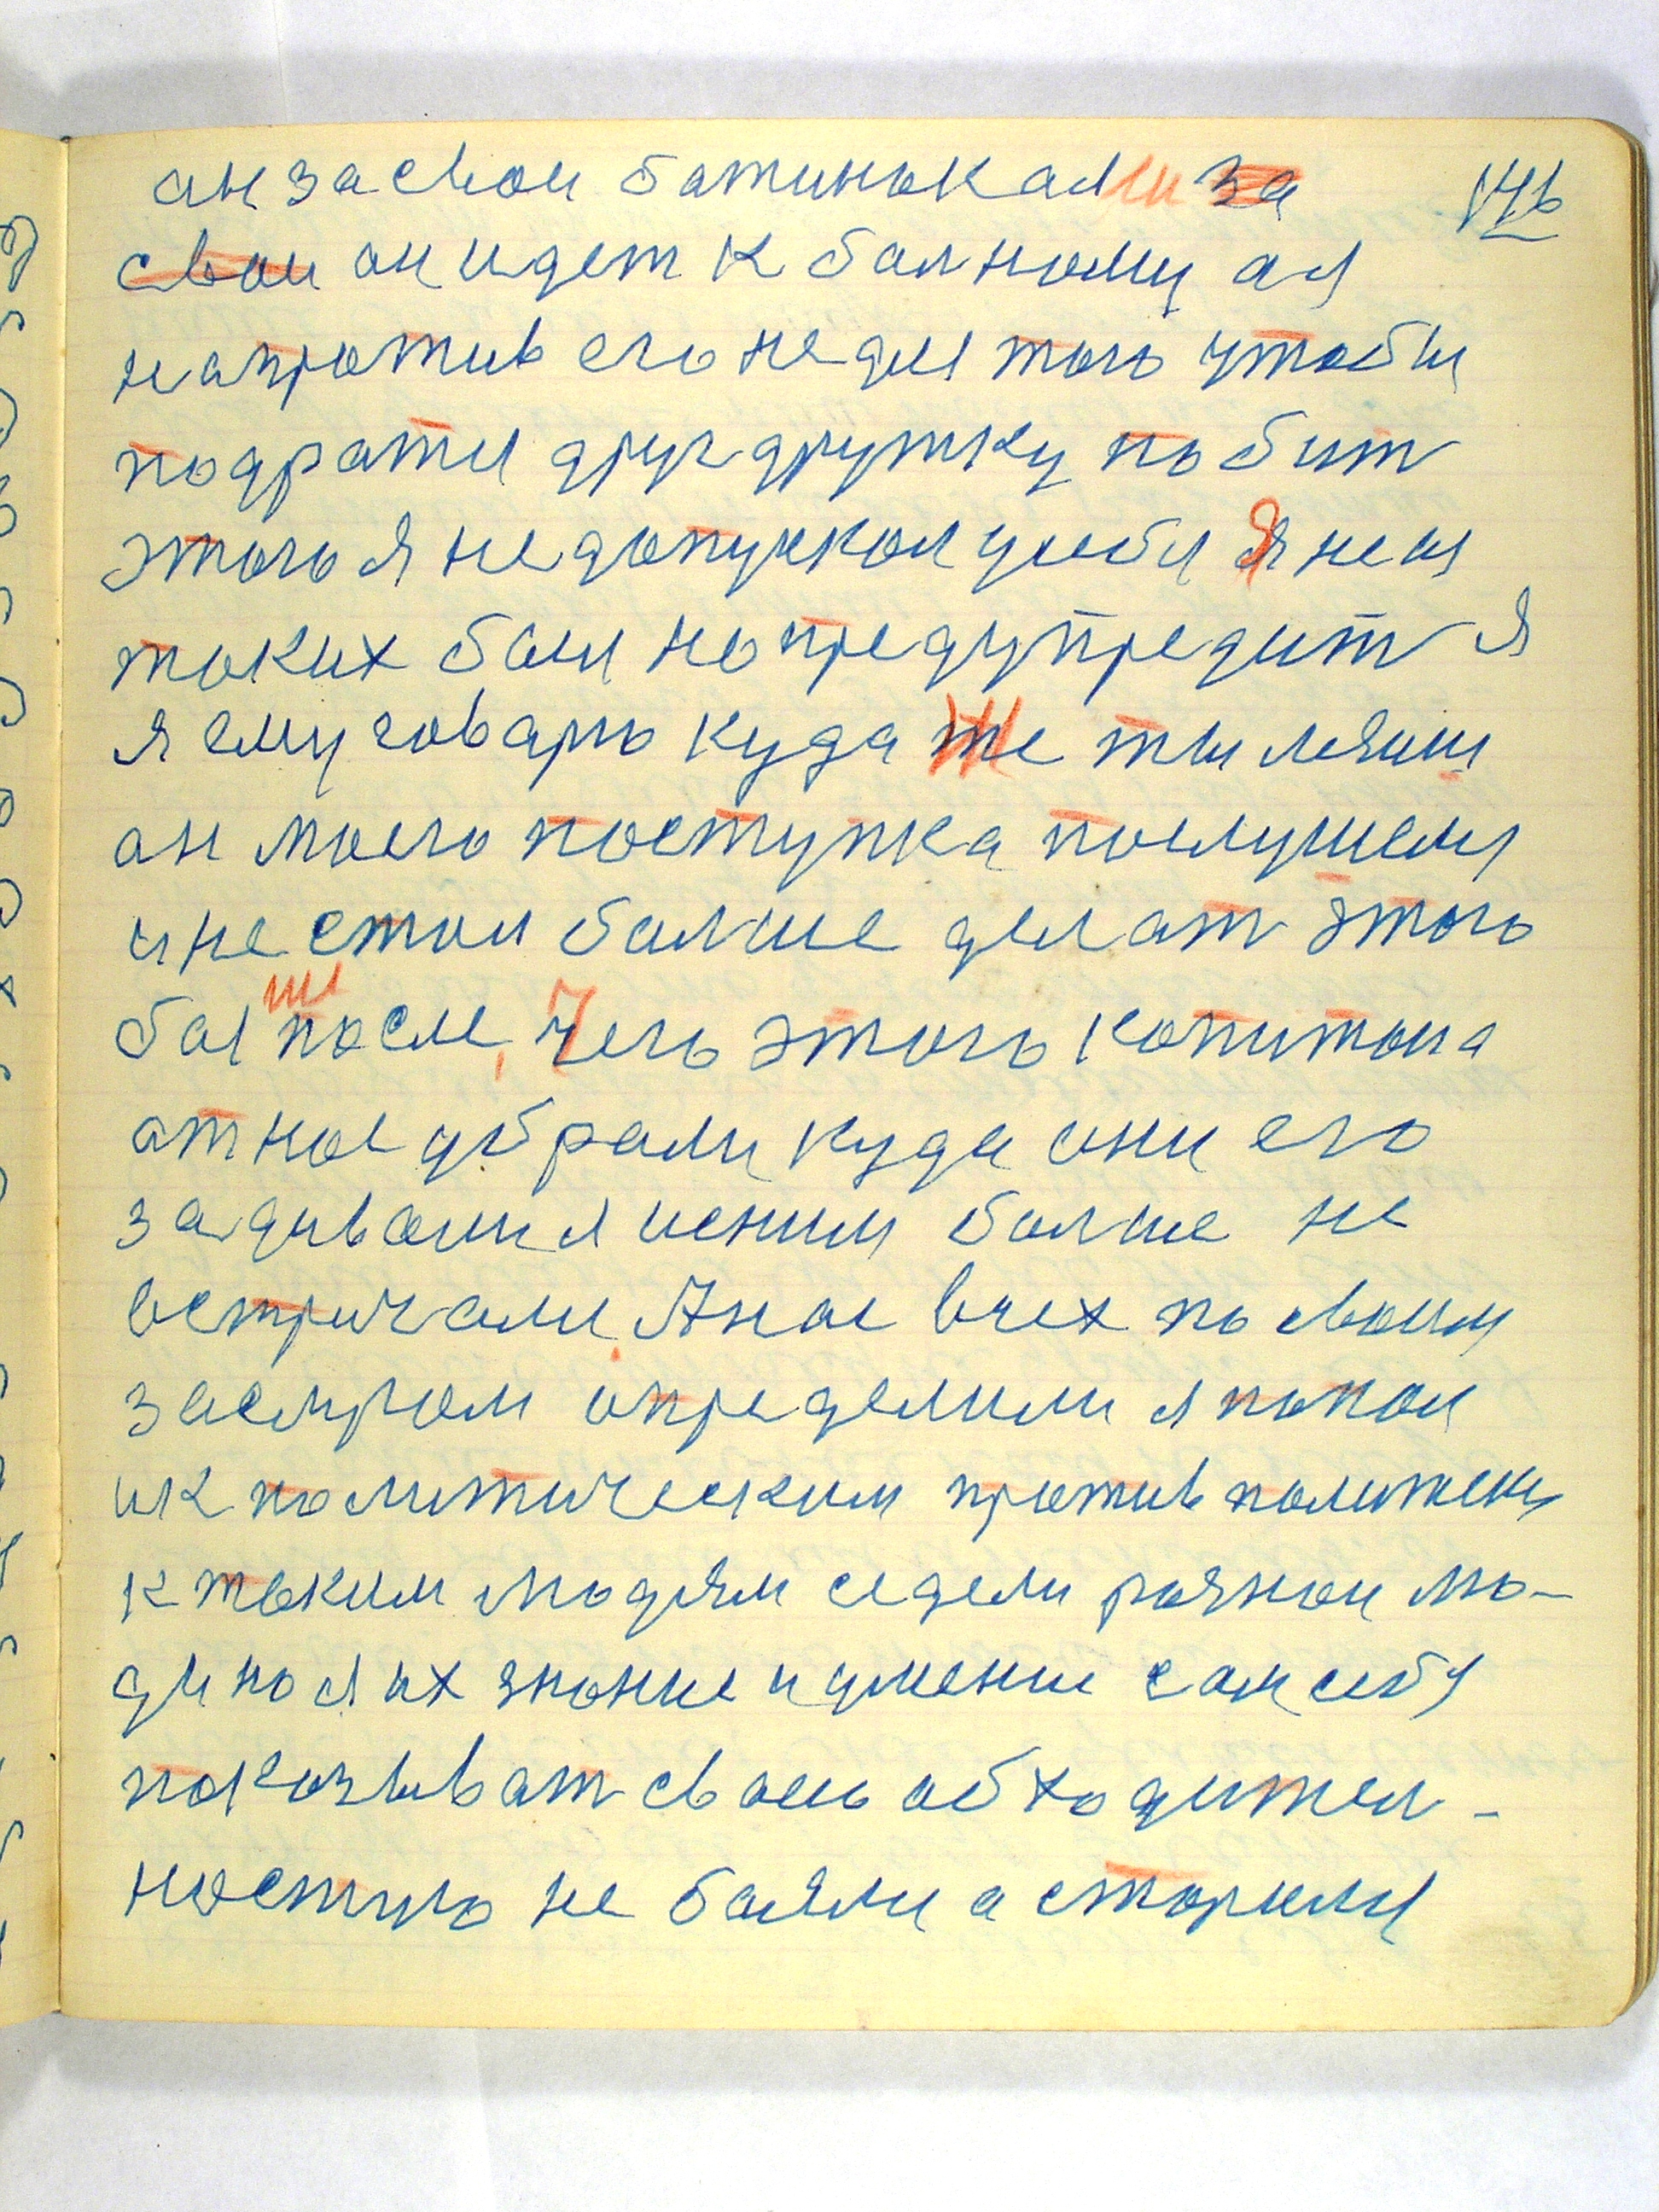 146
ан за свои батиньками за
свои он идет к балному а я
напротив его не для того чтобы
подратся друг дружку побит
этого я недопускал усебя я не из
таких был но предупредит я
я ему говарю куда же ты лезиш
ан моего поступка послушелся
и не стал балше делат этого
бал после, чего этого капитана
ат нас убрали куда они его
задивали я сеним балше не
встричали. А нас всех по своим
заслугам определили я попал
ик политическим против политеки
к таким людям седели разнои лю-
ди но я их знание и умение сам себя
показыват своею обходител-
ностию не баяли а старился